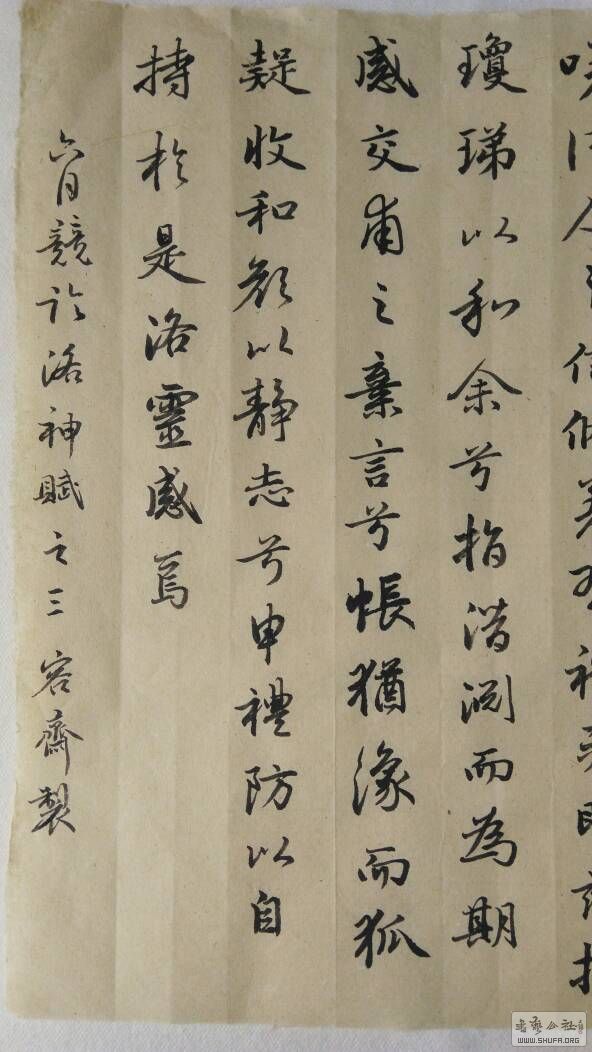 人之信修羌
瓊珶以和余兮指潛渕而為期
感交甫之棄言兮悵猶豫而狐
疑收和顏以静志兮申禮防以自
持於是洛靈感焉
六月競洛神賦之三容齋製
WWW.SHUFA.ORG